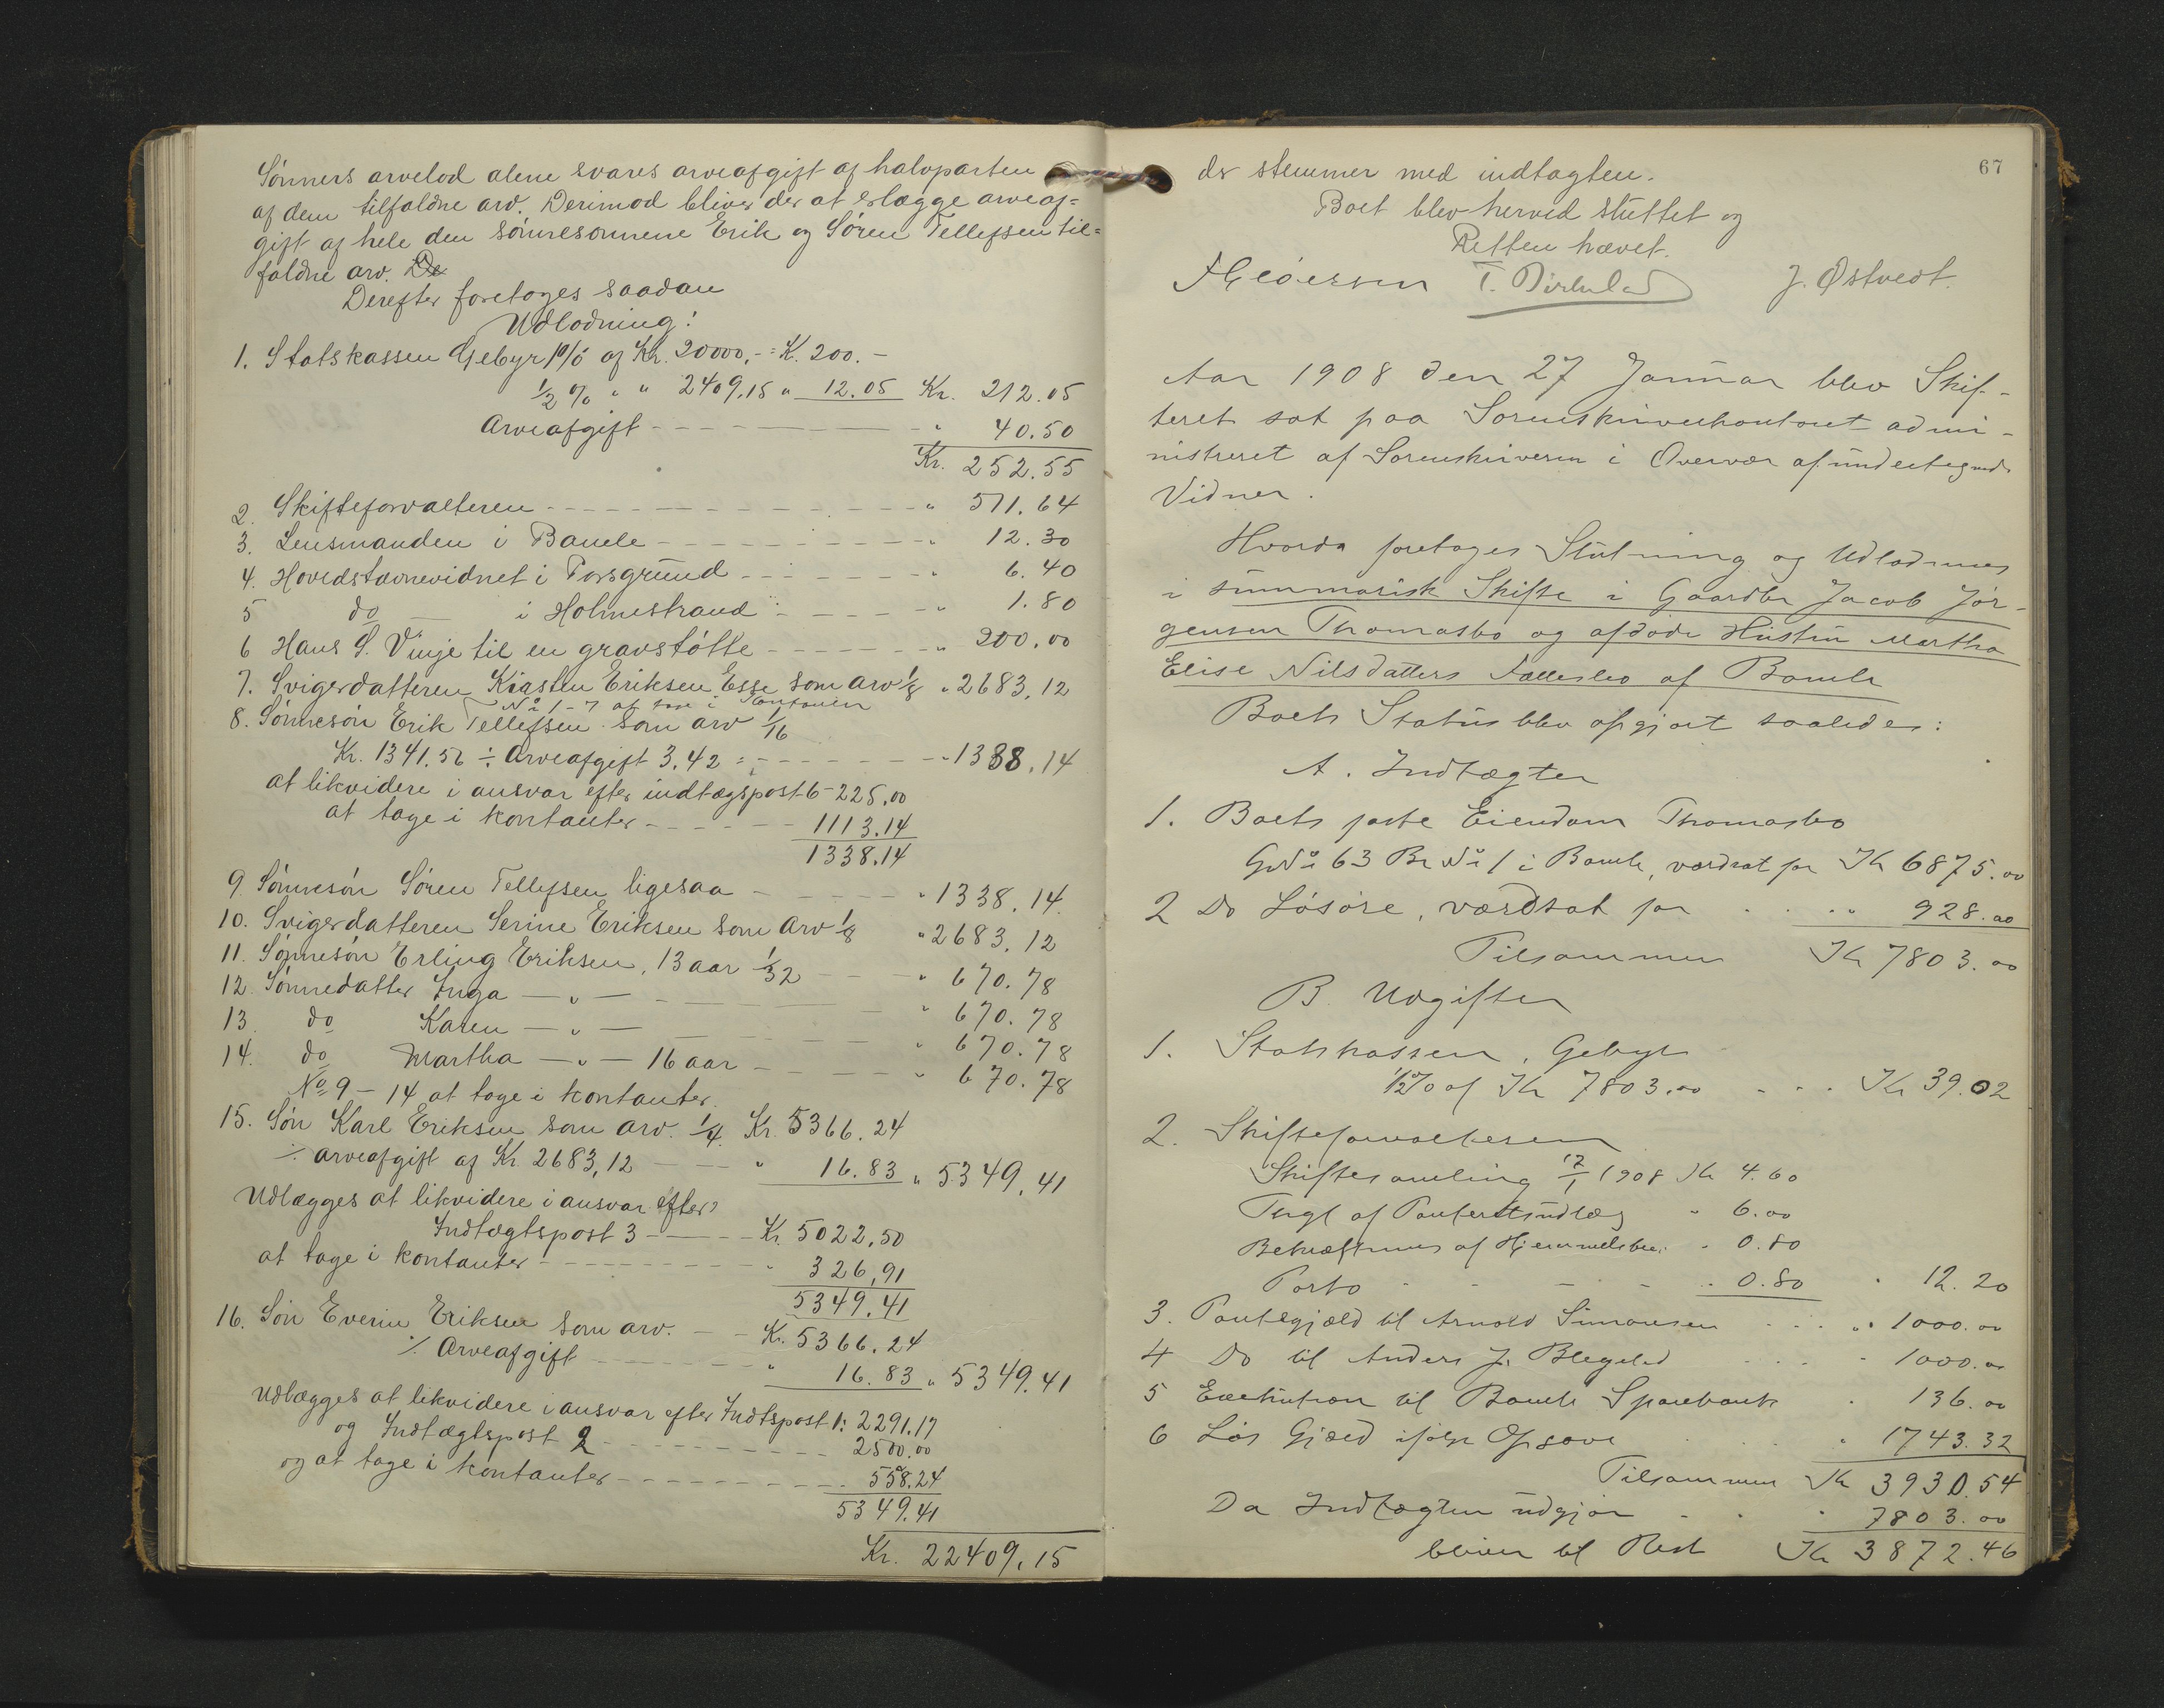 Sønners arvelod alene svares arveafgift af halvparten
af dem tilfaldne arv. Derimod bliver der at erlægge arveaf=
gift af hele den sønnesønnene Erik og Søren Tellefsen til=
faldne arv. De
Derefter foretoges saadan
Udlodning:
1. Statskassen Gebyr 1% af Kr. 20000,- = K. 200.-
1/2 % " " 2409,15 " 12.05 Kr. 212.05
Arveafgift " 40.50
Kr. 252.55
2. Skifteforvalteren " 511.64
3. Lensmanden i Bamle " 12.30
4. Hovedstævnevidnet i Porsgrund " 6.40
5 do i Holmestrand " 1.80
6 Hans S. Vinje til en gravstøtte " 200.00
7. Svigerdatteren Kirsten Eriksen Esse som arv 1/8 " 2683,12
No 1-7 at tage i Kontanter
8. Sønnesøn Erik Tellefsen som arv 1/16
Kr. 1341.56 ÷ Arveafgift 3.42 = " 1338,14
at likvidere i ansvar efter indtægspost 6 - 225,00
at tage i kontanter 1113.14
1338.14
9. Sønnesøn Søren Tellefsen ligesaa " 1338.14
10. Svigerdatteren Serine Eriksen som arv 1/8 " 2683.12
11. Sønnesøn Erling Eriksen, 13 aar 1/32 " 670.78
12. Sønnedatter Inga — " — " 670.78
13. do Karen — " — " 670.78
14. do Martha — " — 16 aar " 670.78
No 9 - 14 at tage i kontanter.
15. Søn Karl Eriksen som arv. 1/4. Kr. 5366.24
÷ arveafgift af Kr. 2683,12 " 16.83 " 5349,41
Udlægges at likvidere i ansvar efter
Indtægtspost 3 Kr. 5022,50
at tage i kontanter " 326,91
5349.41
16. Søn Evenin Eriksen som arv. Kr. 5366.24
÷ Arveafgift " 16.83 " 5349.41
Udlægges at likvidere i ansvar efter Indtspost 1: 2291.17
og Indtægtspost 2 2500.00
og at tage i kontanter 558.24
5349.41
Kr. 22409,15
67
der stemmer med indtægten.
Boet blev herved sluttet og
Retten hævet.
J. Østvedt.
Aar 1908 den 27 Januar blev Skif-
teret sat paa Sorenskriverkontoret admi-
nistreret af Sorenskriveren i Overvær af undertegnede
Vidner.
Hvorda foretoges Slutning og Udlodning
i summarisk Skifte i Gaardbr Jacob Jør-
gensen Thomasbo og afdøde Hustru Martha
Elise Nilsdatters Fællesbo af Bamle
Boets Status blev opgjort saaledes:
A. Indtægter
1. Boets faste Eiendom Thomasbo
GNo 63 Br No 1 i Bamle, værdsat for Kr 6875.00
2 Do Løsøre, værdsat for " 928.00
Tilsammen Kr 7803.00
B. Udgifter
1. Statskassen, Gebyr
1/2 % af Kr 7803.00 Kr 39.02
2. Skifteforvalteren
Skiftesamling 17/1 1908 Kr 4.60
Tingl af Panteretsudlæg " 6.00
Bekræftnings af Hjemmelsbr. " 0.80
Porto " 0.80 " 12.20
3. Pantegjæld til Arnold Simonsen " 1000.00
4 Do til Anders J. Blegeled " 1000.00
5 Exekution til Bamle Sparebank " 136.00
6 Løs Gjæld ifølge Opgave " 1743.32
Tilsammen Kr 3930.54
Da Indtægten udgjør " 7803.00
bliver til Rest Kr 3872.46